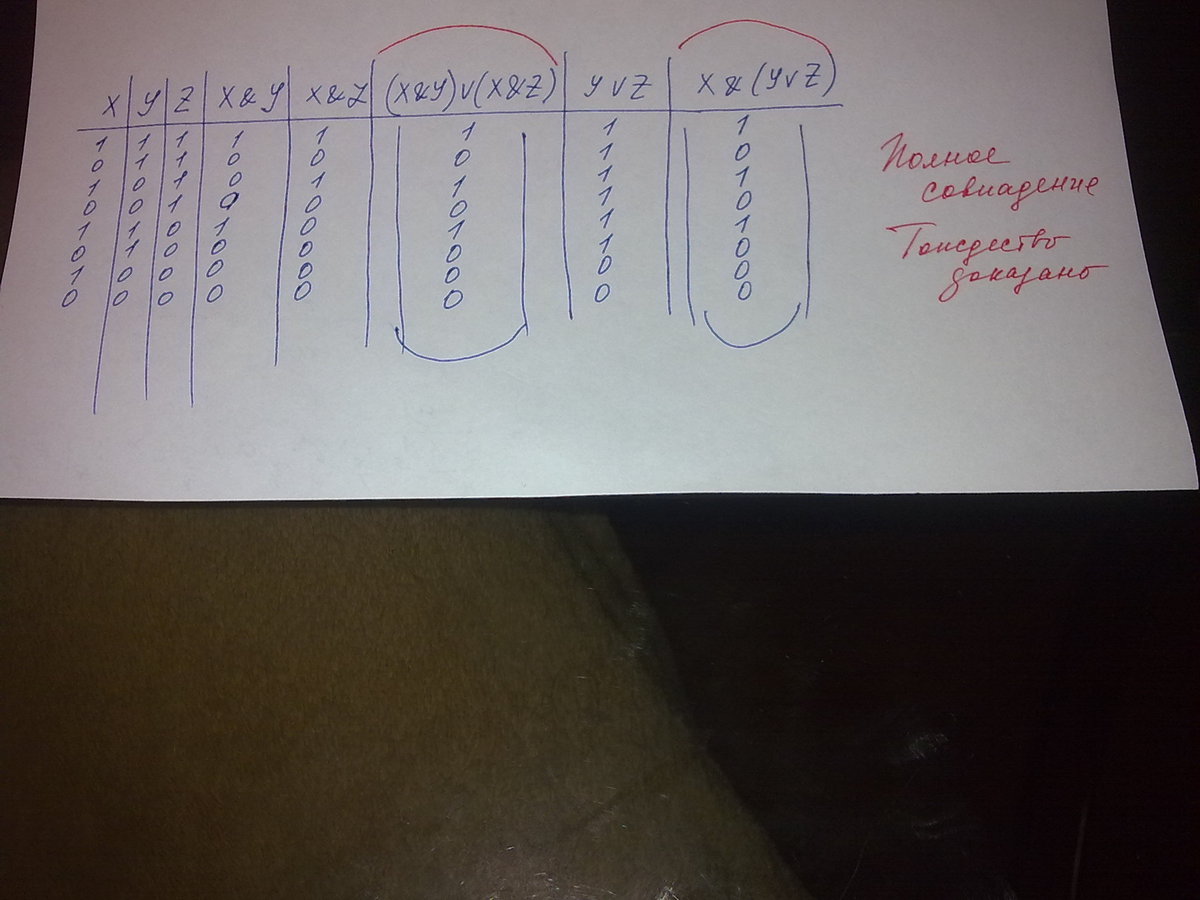 X | Y | Z | X & Y | X & Z | (X & Y) v (X & Z) | Y v Z | X & (Y v Z)
1 | 1 | 1 | 1 | 1 | 1 | 1 | 1
0 | 1 | 1 | 0 | 0 | 0 | 1 | 0
1 | 0 | 1 | 0 | 1 | 1 | 1 | 1
0 | 0 | 1 | 0 | 0 | 0 | 1 | 0
1 | 1 | 0 | 1 | 0 | 1 | 1 | 1
0 | 1 | 0 | 0 | 0 | 0 | 1 | 0
1 | 0 | 0 | 0 | 0 | 0 | 0 | 0
0 | 0 | 0 | 0 | 0 | 0 | 0 | 0
Полное
совпадение
Тождество
доказано